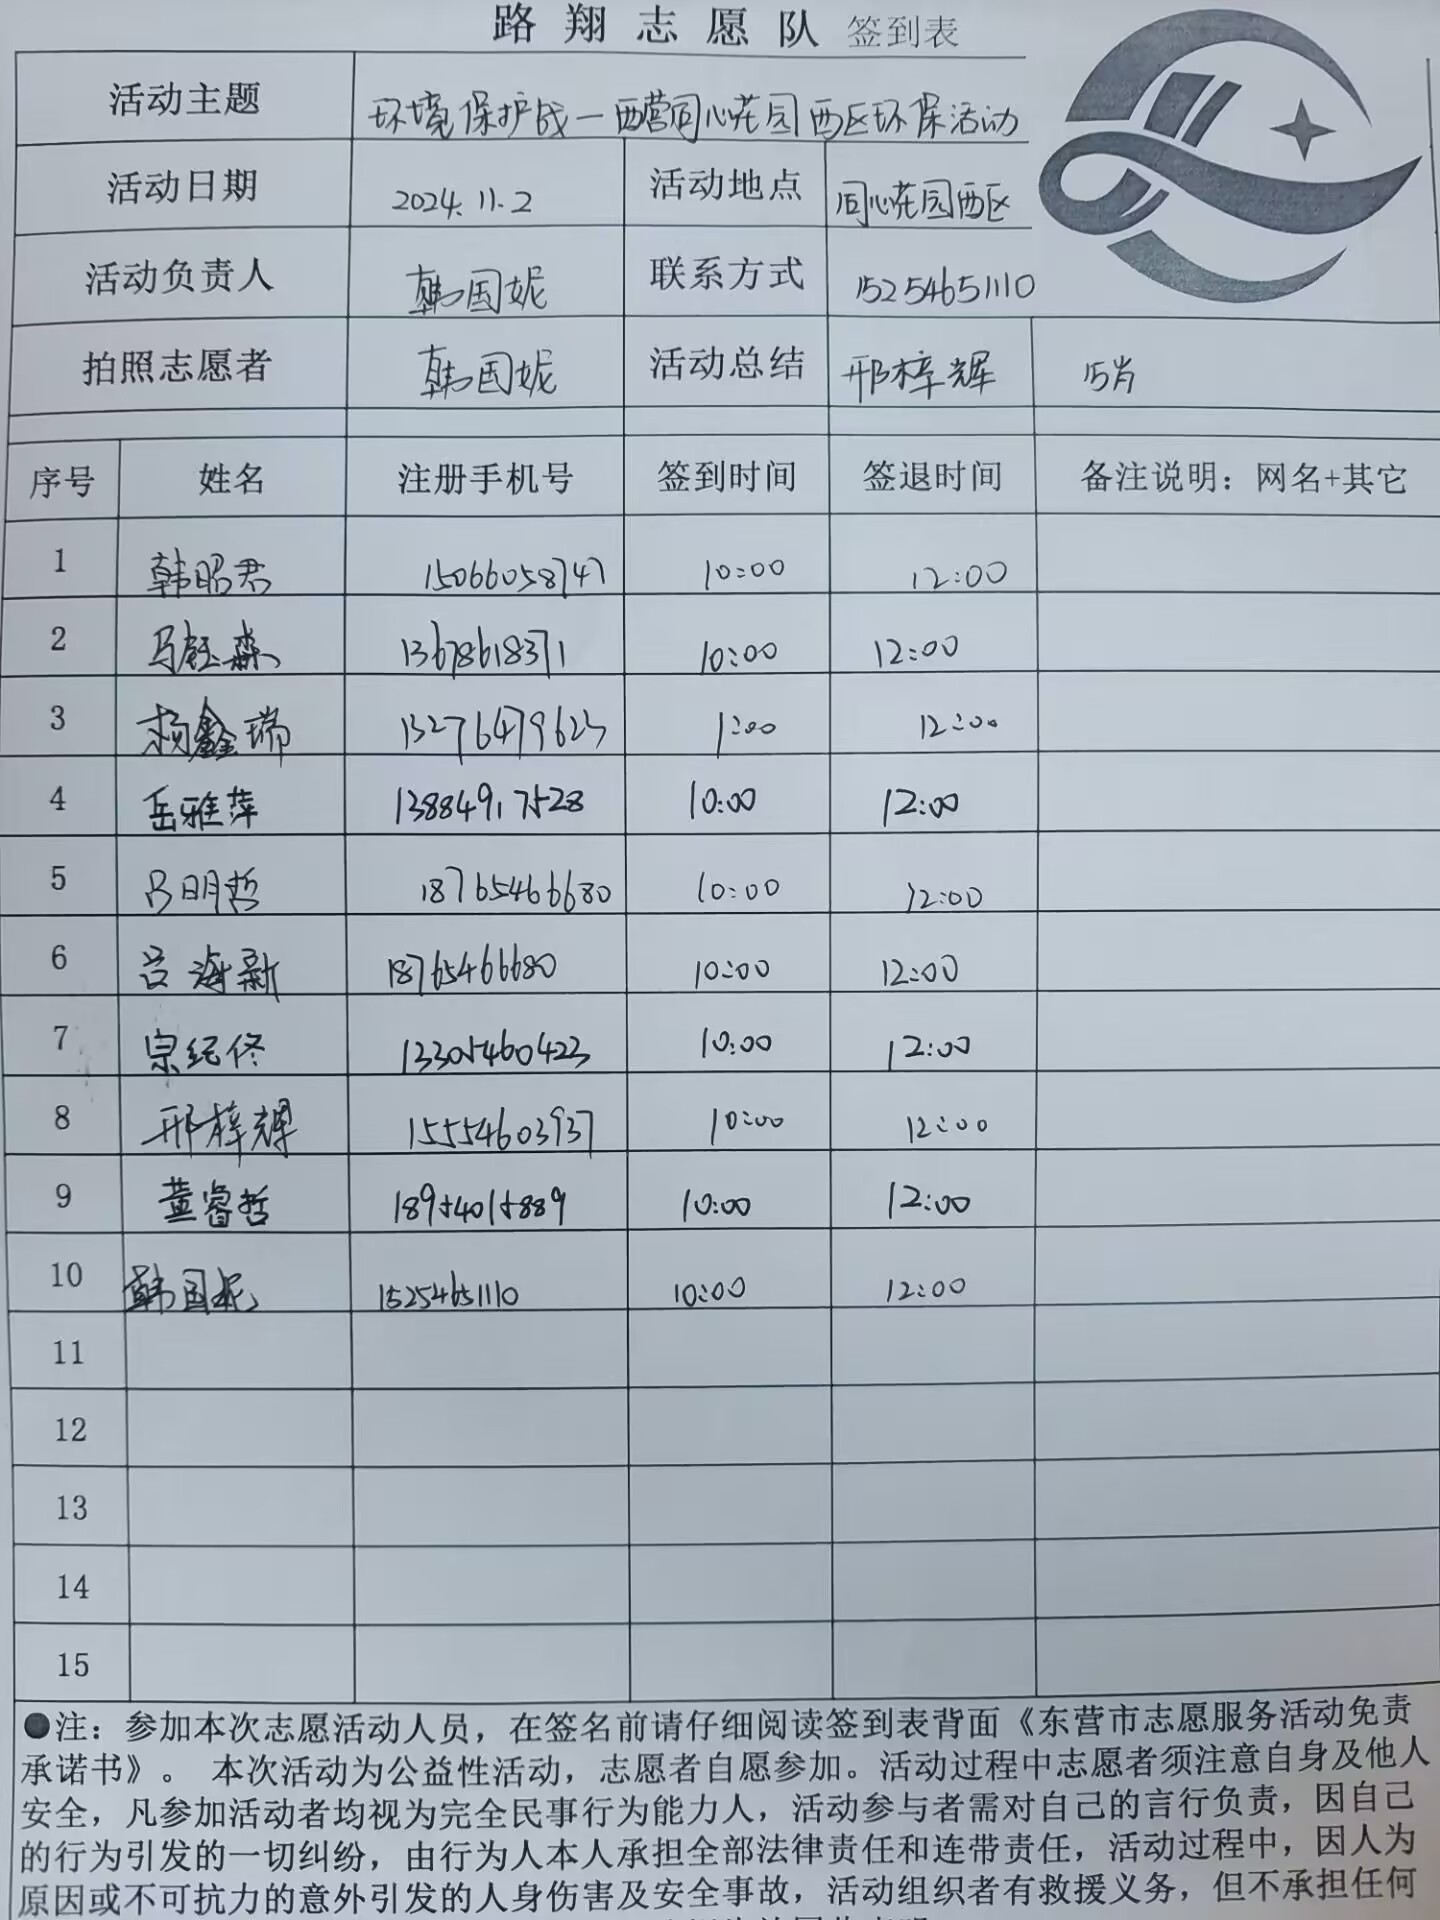 路翔志愿队 签到表
活动主题 环境保护战一西营同心花园西区环保活动
活动日期 2024.11.2 活动地点 同心花园西区
活动负责人 韩国妮 联系方式 15254651110
拍照志愿者 韩国妮 活动总结 邢梓辉 15岁
序号 姓名 注册手机号 签到时间 签退时间 备注说明：网名+其它
1 韩昭君 15066058747 10:00 12:00
2 马钰森 13678618371 10:00 12:00
3 杨鑫瑞 13276479623 1:00 12:00
4 岳雅萍 13884917528 10:00 12:00
5 吕明哲 18765466680 10:00 12:00
6 吕海新 18765466680 10:00 12:00
7 宗纪佟 13305460423 10:00 12:00
8 邢梓辉 15554603937 10:00 12:00
9 董睿哲 18954015889 10:00 12:00
10 韩国妮 15254651110 10:00 12:00
11
12
13
14
15
●注：参加本次志愿活动人员，在签名前请仔细阅读签到表背面《东营市志愿服务活动免责
承诺书》。 本次活动为公益性活动，志愿者自愿参加。活动过程中志愿者须注意自身及他人
安全，凡参加活动者均视为完全民事行为能力人，活动参与者需对自己的言行负责，因自己
的行为引发的一切纠纷，由行为人本人承担全部法律责任和连带责任，活动过程中，因人为
原因或不可抗力的意外引发的人身伤害及安全事故，活动组织者有救援义务，但不承担任何